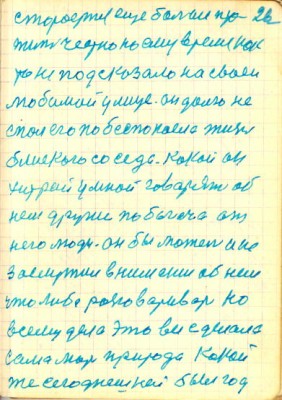 старости еще больше про- 26
жить честно по ему время как
то не подсказало на своей
любимой улице. он долго не
спал его побеспокоела жизн
близкого соседа. какой он
хитрой умной говарят об
нем други побы а от
него люди. он бы может и не
засмертии внимании об нем
что либо разговаривал но
всему дела это вы сделала
сама мат природа какой
же сегоднешней был год